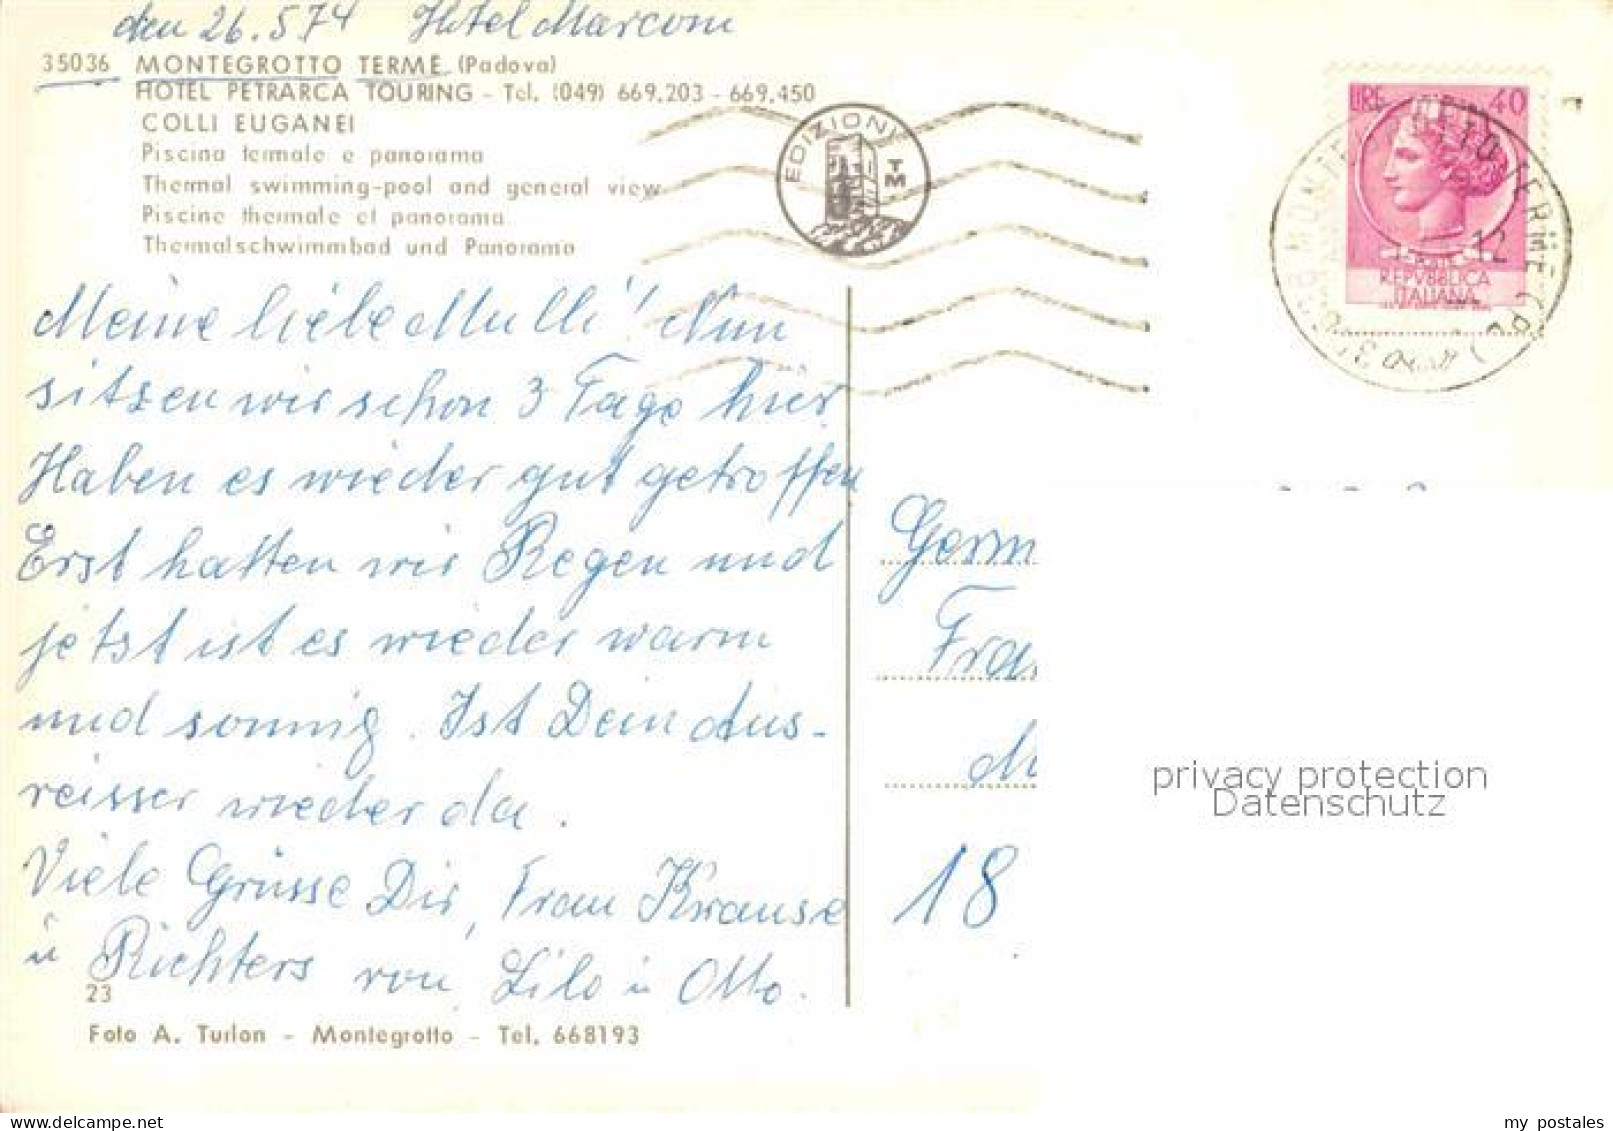 den 26.574 Hotel Marconi
35036 MONTEGROTTO TERME (Padova)
HOTEL PETRARCA TOURING - Tel. (049) 669.203 - 669.450
COLLI EUGANEI
Piscina termale e panorama
Thermal swimming-pool and general view
Piscine thermale et panorama
Thermalschwimmbad und Panorama
EDIZIONI
TM
LIRE 40
POSTE
REPVBBLICA
ITALIANA
12
Meine liebe Mulli! Nun
sitzen wir schon 3 Tage hier
Haben es wieder gut getroffen
Erst hatten wir Regen und
jetzt ist es wieder warm
und sonnig. Ist Dein Aus-
reisser wieder da.
Viele Grüsse Dir, Frau Krause
u Richters von Lilo u Otto.
Germ
Fra
18
privacy protection
Datenschutz
23
Foto A. Turlon - Montegrotto - Tel. 668193
www.delcampe.net
my_postales